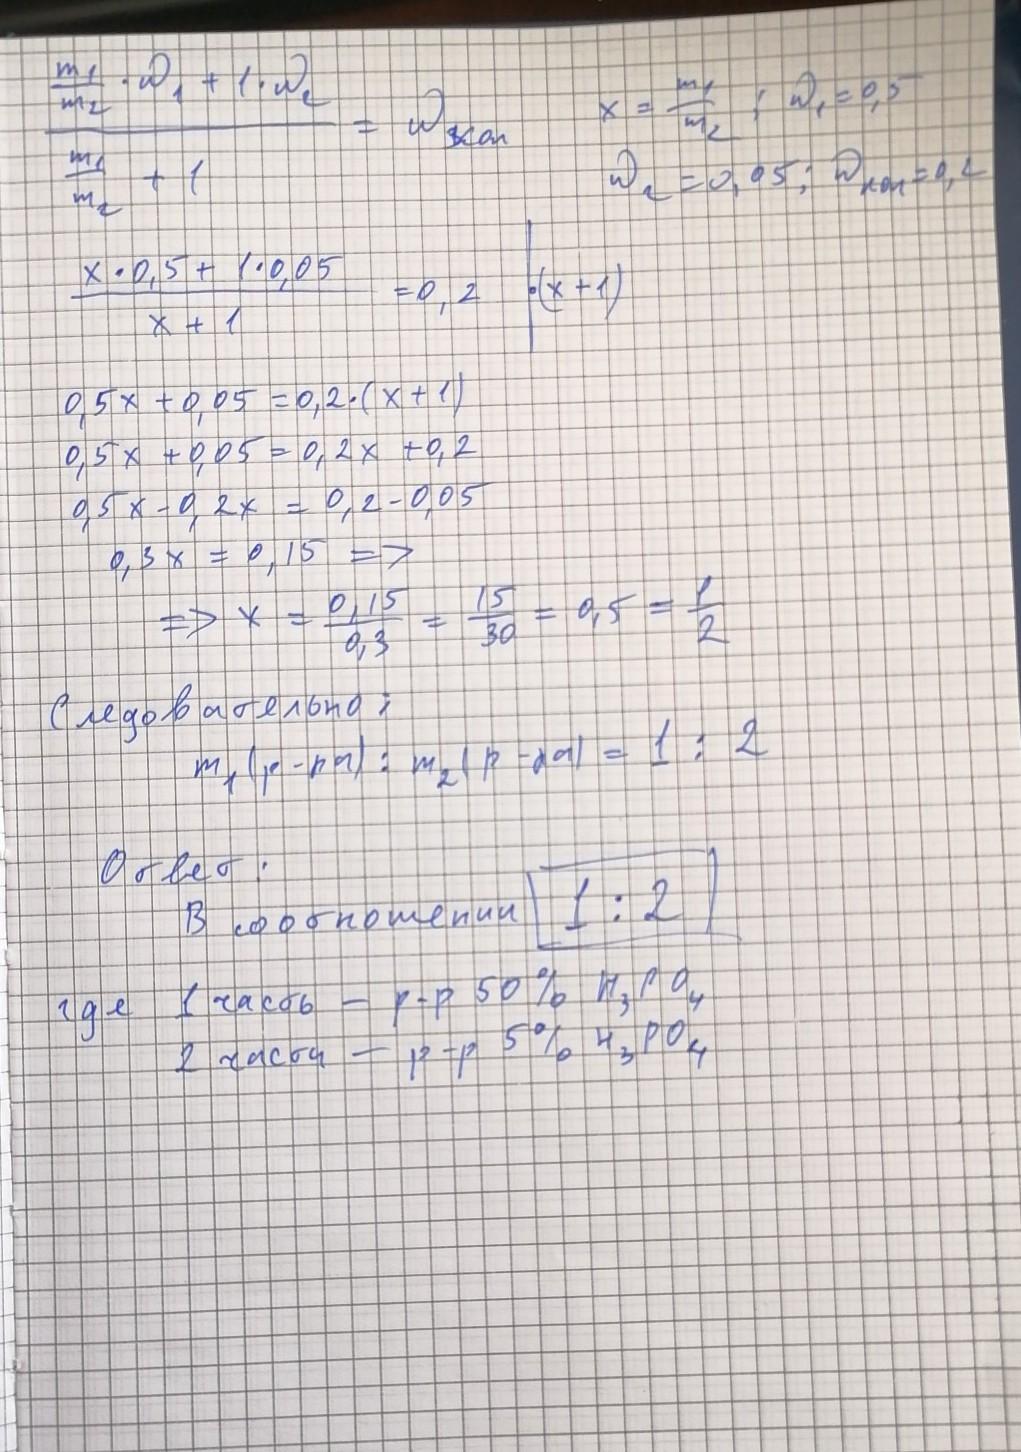 m₁/m₂ · ω₁ + 1·ω₂ / m₁/m₂ + 1 = ω кон
x = m₁/m₂ ; ω₁ = 0,5
ω₂ = 0,05; ω кон = 0,2
x·0,5 + 1·0,05 / x + 1 = 0,2 | ·(x+1)
0,5x + 0,05 = 0,2·(x+1)
0,5x + 0,05 = 0,2x + 0,2
0,5x - 0,2x = 0,2 - 0,05
0,3x = 0,15 =>
=> x = 0,15/0,3 = 15/30 = 0,5 = 1/2
Следовательно:
m₁(р-ра) : m₂(р-ра) = 1 : 2
Ответ:
В соотношении 1 : 2
где 1 часть — р-р 50% H₃PO₄
2 части — р-р 5% H₃PO₄